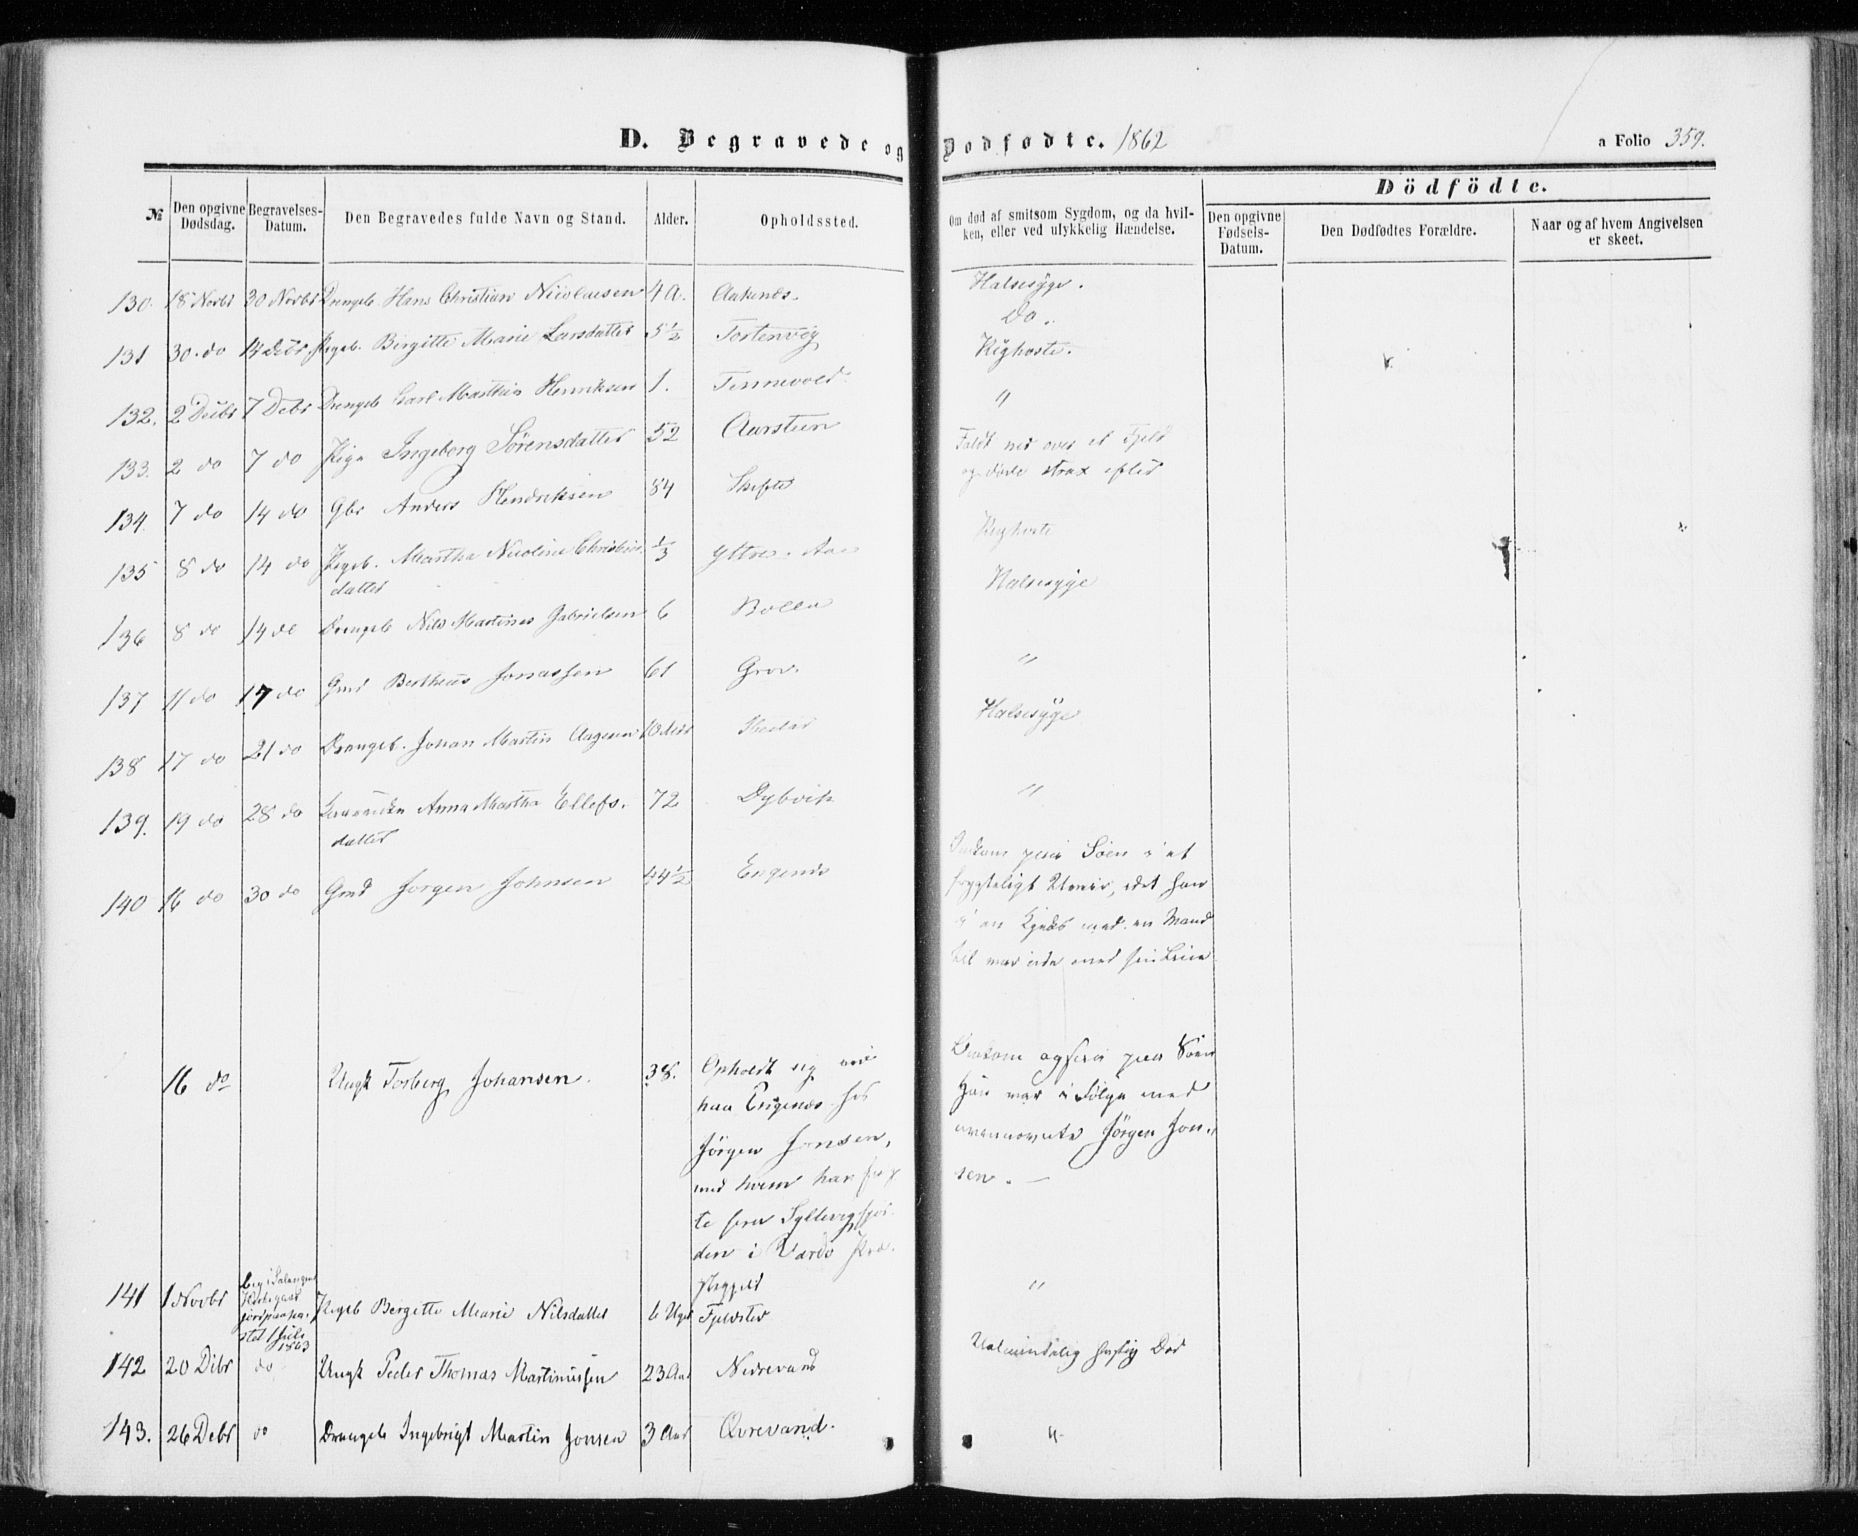 D. Begravede og Dødfødte. 1862
a Folio 359.
Dödfödte.
№
Den opgivne Dødsdag.
Begravelses-Datum.
Den Begravedes fulde Navn og Stand.
Alder.
Opholdssted.
Om død af smitsom Sygdom, og da hvil-
ken, eller ved ulykkelig Hændelse.
Den opgivne Fødsels-Datum.
Den Dødfødtes Forældre.
Naar og af hvem Angivelsen
er skeet.
130. 18 Novbr 30 Novbr Drengeb. Hans Christian Nicolaisen 4 A. Halsesyge.
131 30. do 14 Debr Pigeb. Birgitte Marie Larsdatter 5½ Do.
132. 2 Debr 7 Debr Drengeb Carl Matthis Henriksen 1. Tennevold. Kighoste.
133. 2 do 7 do Pige Ingeborg Sørensdatter 52 Aarsteen "
134. 7 do 14 do Gbr Anders Hendriksen 84 Faldt ned over et Fjeld
og døde strax efter
135 8 do 14 do Pigeb. Martha Nicoline Christian- ⅓ Yttre- Aa Kighoste
datter
136 8 do 14 do Drengeb Nils Martinus Gabrielsen 6 Bolla Halsesyge
137 11 do 17 do Gmd Bertheus Jonassen 61 Grov. "
138 17 do 21 do Drengeb. Johan Martin Aagesen 10 Halsesyge
139. 19 do 28 do Anna Martha Ellefs- 72 Dybvik "
datter
140 16 do 30 do Gmd Jørgen Johnsen 44½ Engenes Omkom paa Søen i et
frygteligt Uveir, idet han
i en med en Mand
til var ude med
16 do Ungk Torberg Johansen. 38. Opholdt sig
paa Engenes hos
Jørgen Jonsen,
med hvem han
i Vardø Præ-
stegjeld
Omkom ogsaa paa Søen
Han var i Følge med
ovennævnte Jørgen Jon-
sen. —
141 1 Novbr Beg i Salangens
Kirkegaard
jordpaaka-
stet 1 Juli
1863
Pigeb Bergitte Marie Nilsdatter 6 Uger "
142 20 Dibr do Ungk Peder Thomas Martinussen 23 Aar Nedrevand Ualmindelig hastig Død
143. 26 Debr do Drengeb Ingebrigt Martin Jonsen 3 Aar Øvrevand. "